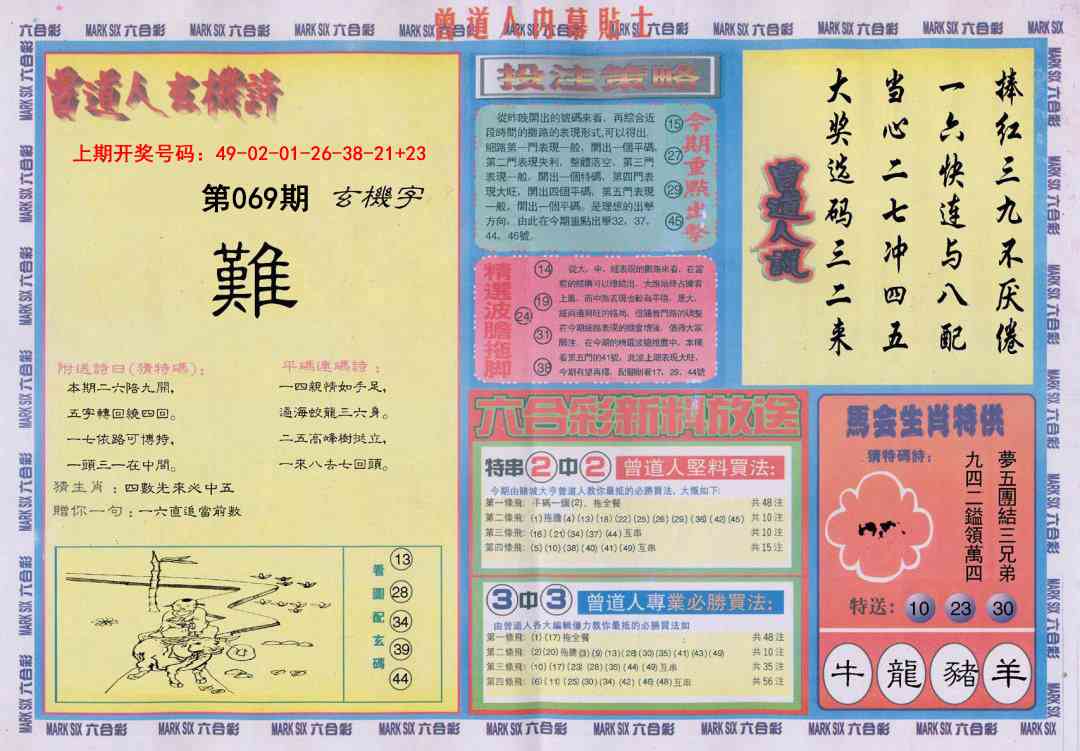 曾道人内幕貼士
六合彩 MARK SIX 六合彩 MARK SIX 六合彩 MARK SIX 六合彩 MARK SIX 六合彩 MARK SIX 六合彩 MARK SIX 六合彩 MARK SIX 六合彩 MARK SIX 六合彩 MARK SIX
曾道人玄機詩
上期开奖号码：49-02-01-26-38-21+23
第069期 玄機字
難
附送詩曰(猜特碼)：
本期二六陪九開，
五字轉回繞四回。
一七依路可博特，
一頭三一在中間。
平碼連碼詩：
一四親情如手足，
過海蛟龍三六身。
二五高峰樹挺立，
一來八去七回頭。
猜生肖：四數先來必中五
贈你一句：一六直追當前數
看圖配玄碼
13
28
34
39
44
投注策略
從昨晚開出的號碼來看，再綜合近
段時間的攤路的表現形式,可以得出，
細路第一門表現一般，開出一個平碼，
第二門表現失利，整體落空，第三門
表現一般，開出一個特碼，第四門表
現大旺，開出四個平碼，第五門表現
一般，開出一個平碼，是理想的出擊
方向，由此在今期重點出擊32、37、
44、46號。
今期重點出擊
15
27
29
45
精選波膽拖脚
14
19
24
31
38
看第五門的41號，此波上期表現大旺，
今期有望再爆，配腳則看17、29、44號
六合彩新料放送
特串2中2 曾道人堅料買法：
今期由賭城大亨曾道人教你最抵的必勝買法，大慨如下：
第一條飛：平碼一個(2)，拖全餐 共48注
第二條飛：(1)拖膽(4)(13)(18)(22)(25)(26)(29)(36)(42)(45) 共10注
第三條飛：(16)(21)(34)(37)(44)互串 共10注
第四條飛：(5)(10)(38)(40)(41)(49)互串 共15注
3中3 曾道人專業必勝買法：
由曾道人各大編輯優力教你最抵的必勝買法如
第一條飛：(1)(17)拖全餐 共48注
第二條飛：(2)(20)拖膽(3)(9)(13)(28)(30)(35)(41)(43)(49) 共10注
第三條飛：(10)(17)(23)(28)(36)(44)(49)互串 共35注
第四條飛：(6)(11)(25)(30)(34)(42)(46)(48)互串 共56注
曾道人說
捧红三九不厌倦
一六快连与八配
当心二七冲四五
大奖选码三二来
馬会生肖特供
猜特碼詩：
夢五團結三兄弟
九四二鎰領萬四
特送：10 23 30
牛 龍 豬 羊
MARK SIX 六合彩 MARK SIX 六合彩 MARK SIX 六合彩 MARK SIX 六合彩 MARK SIX 六合彩 MARK SIX 六合彩 MARK SIX 六合彩 MARK SIX 六合彩 MARK SIX 六合彩 MARK SIX